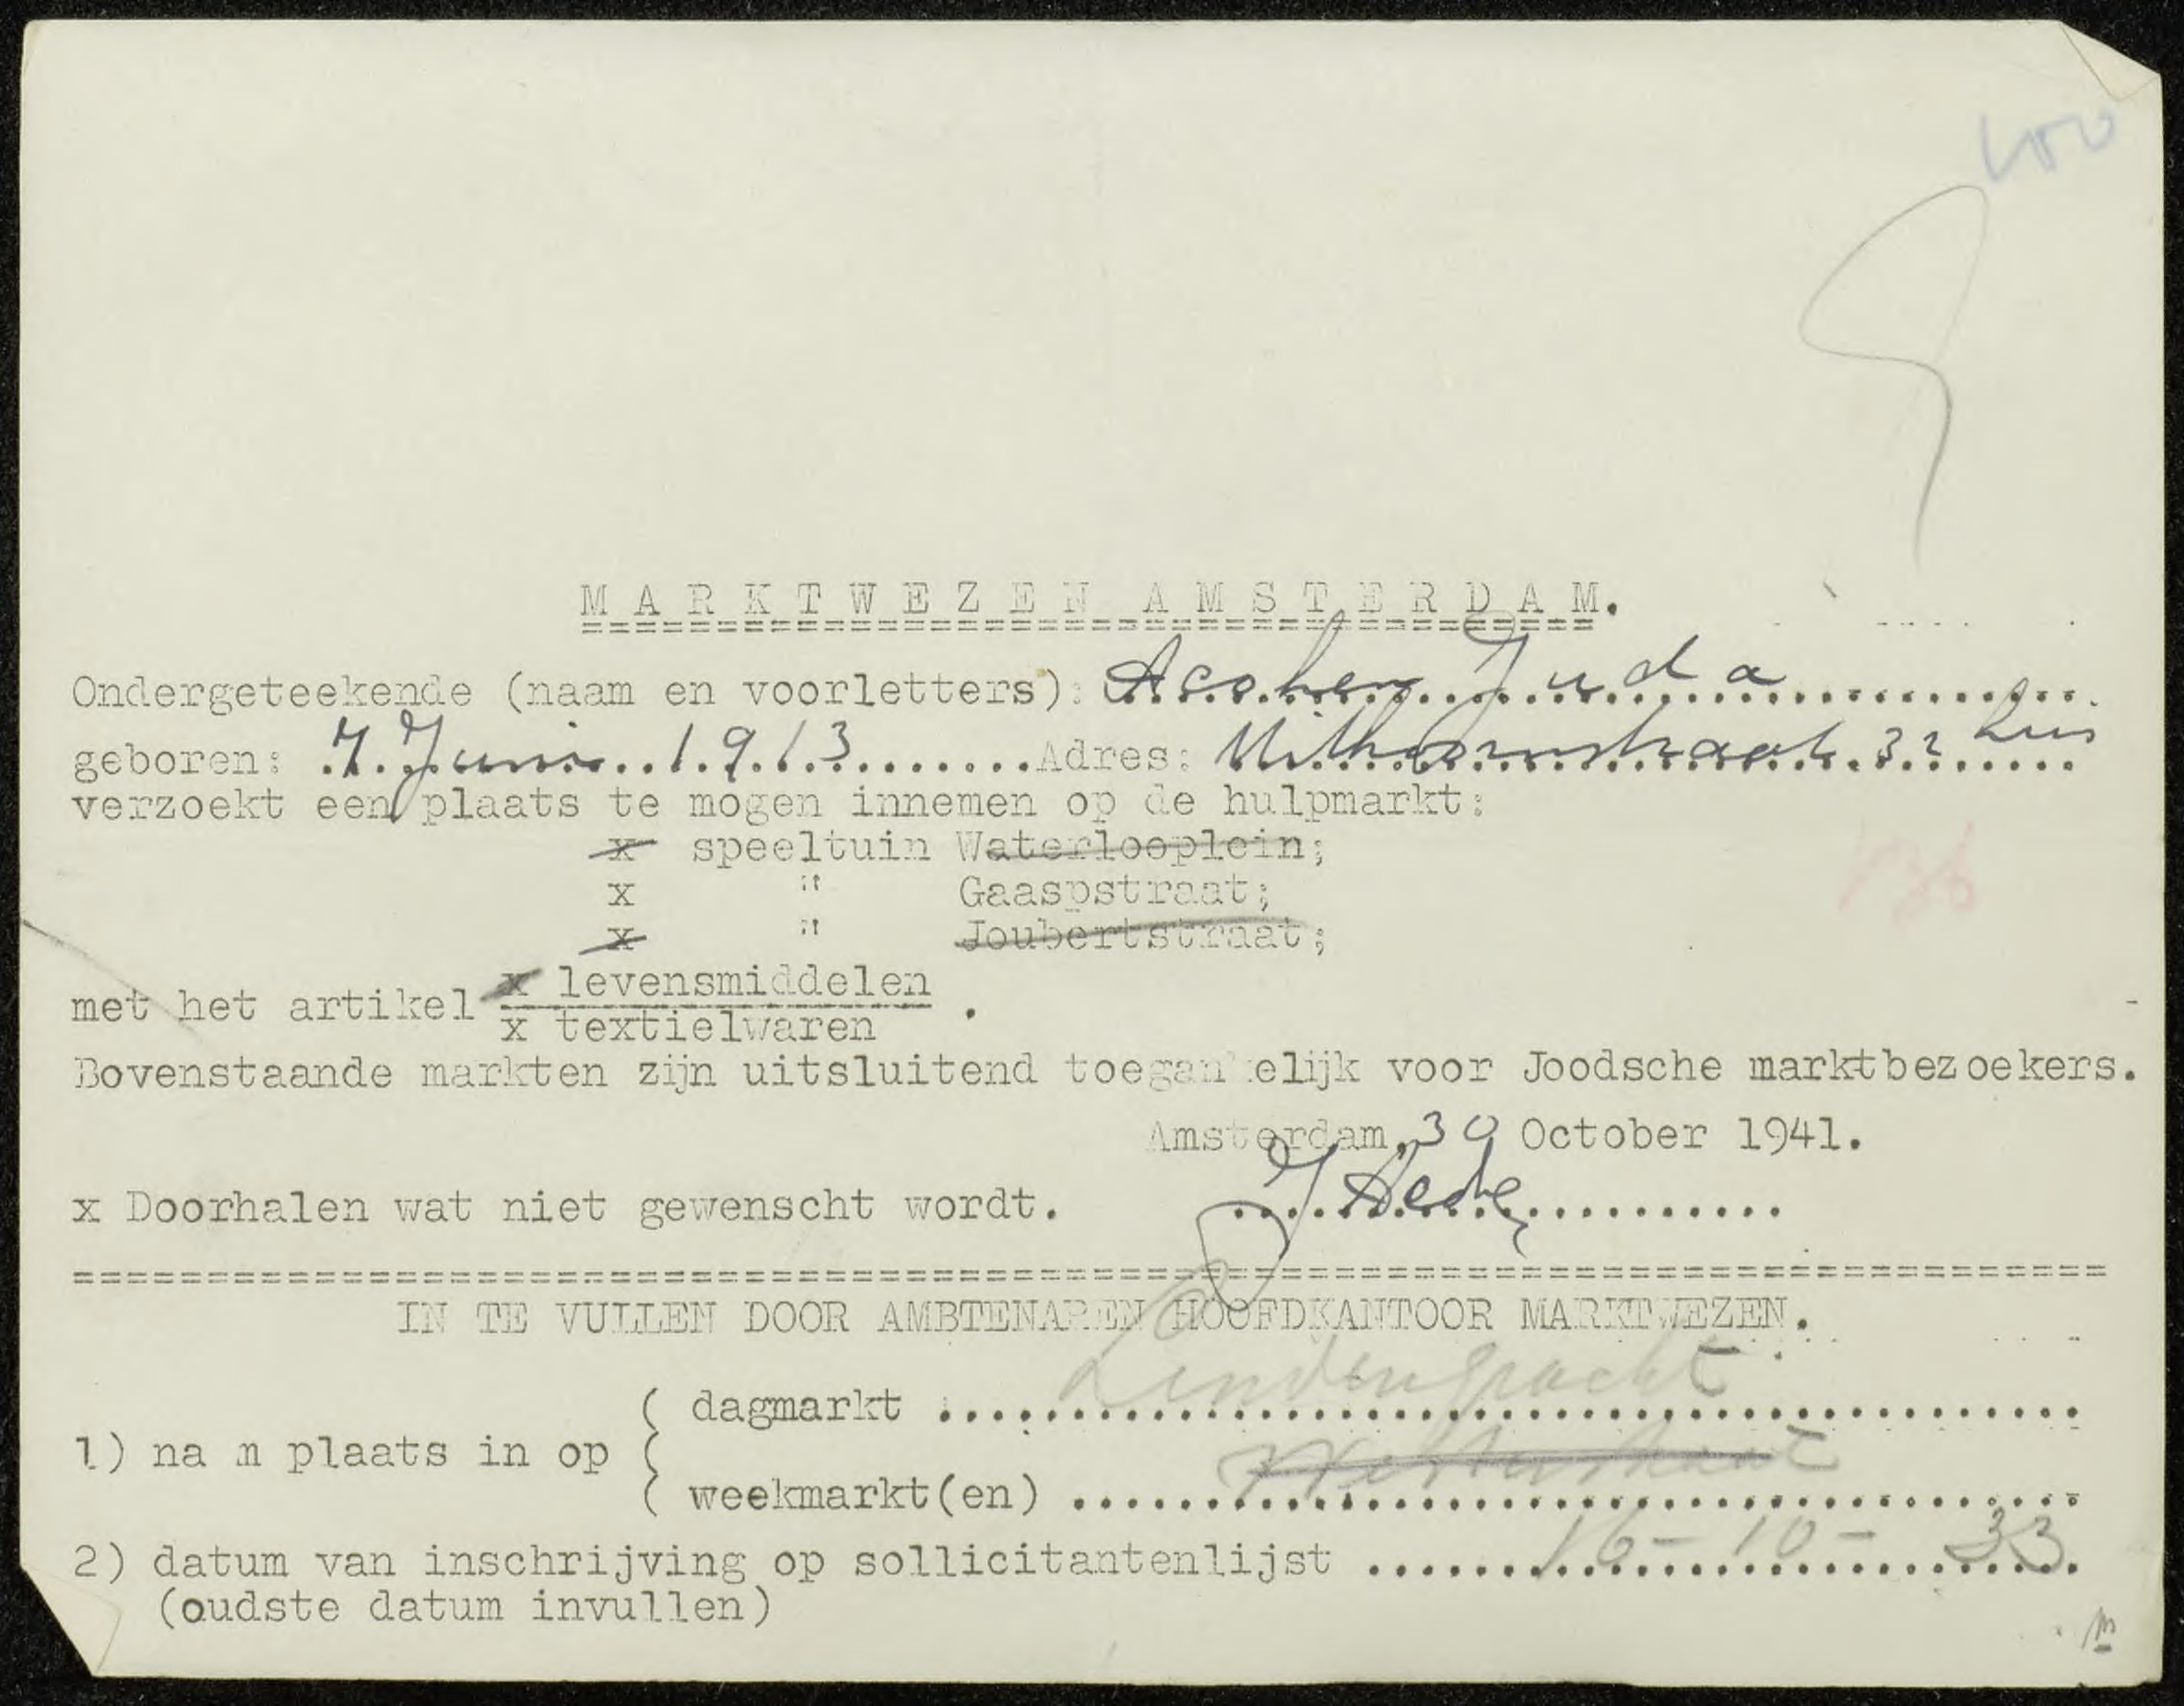 100
MARKTWEZEN AMSTERDAM.
Ondergeteekende (naam en voorletters): Acohen Juda
geboren: 7 Juni 1913 Adres: Uithoornstraat 32 huis
verzoekt een plaats te mogen innemen op de hulpmarkt:
x speeltuin Waterlooplein;
x " Gaaspstraat;
136
x " Joubertstraat;
met het artikel x levensmiddelen
x textielwaren .
Bovenstaande markten zijn uitsluitend toegankelijk voor Joodsche marktbezoekers.
Amsterdam, 30 October 1941.
x Doorhalen wat niet gewenscht wordt.
================================
IN TE VULLEN DOOR AMBTENAREN HOOFDKANTOOR MARKTWEZEN.
( dagmarkt Lindengracht
1) na m plaats in op (
( weekmarkt(en) Westerstraat
2) datum van inschrijving op sollicitantenlijst 16-10-33
(oudste datum invullen)